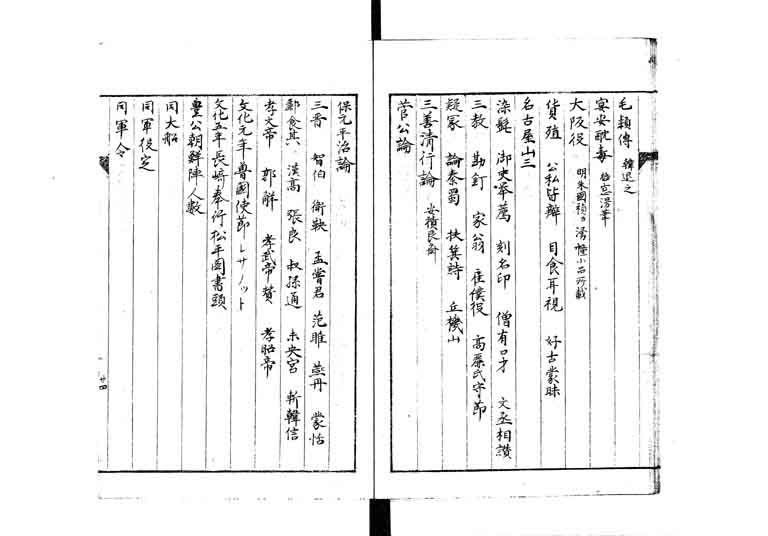 毛頴傳 韓退之
宴安酖毒
大阪役 明朱國禎 湧幢小品所載
貨殖 公私皆辦 目食耳視 好古蒙昧
名古屋山三
染髭 御史举薦 刻名印 僧有口才 文丞相讃
三教 勘釘 家翁 雇僕役 高麗氏守節
疑冢 論秦蜀 扶箕詩 丘機山
三善清行論 安積艮斎
菅公論
保元平治論
三晋 智伯 衛鞅 孟嘗君 范雎 燕丹 蒙恬
酈食其 漢高 張良 叔孫通 未央宮 斬韓信
孝文帝 郭解 孝武帝賛 孝昭帝
文化元年魯國使節レサノット
文化五年長崎奉行松平図書頭
豊公朝鮮陣人数
同大船
同軍役定
同軍令
廿四